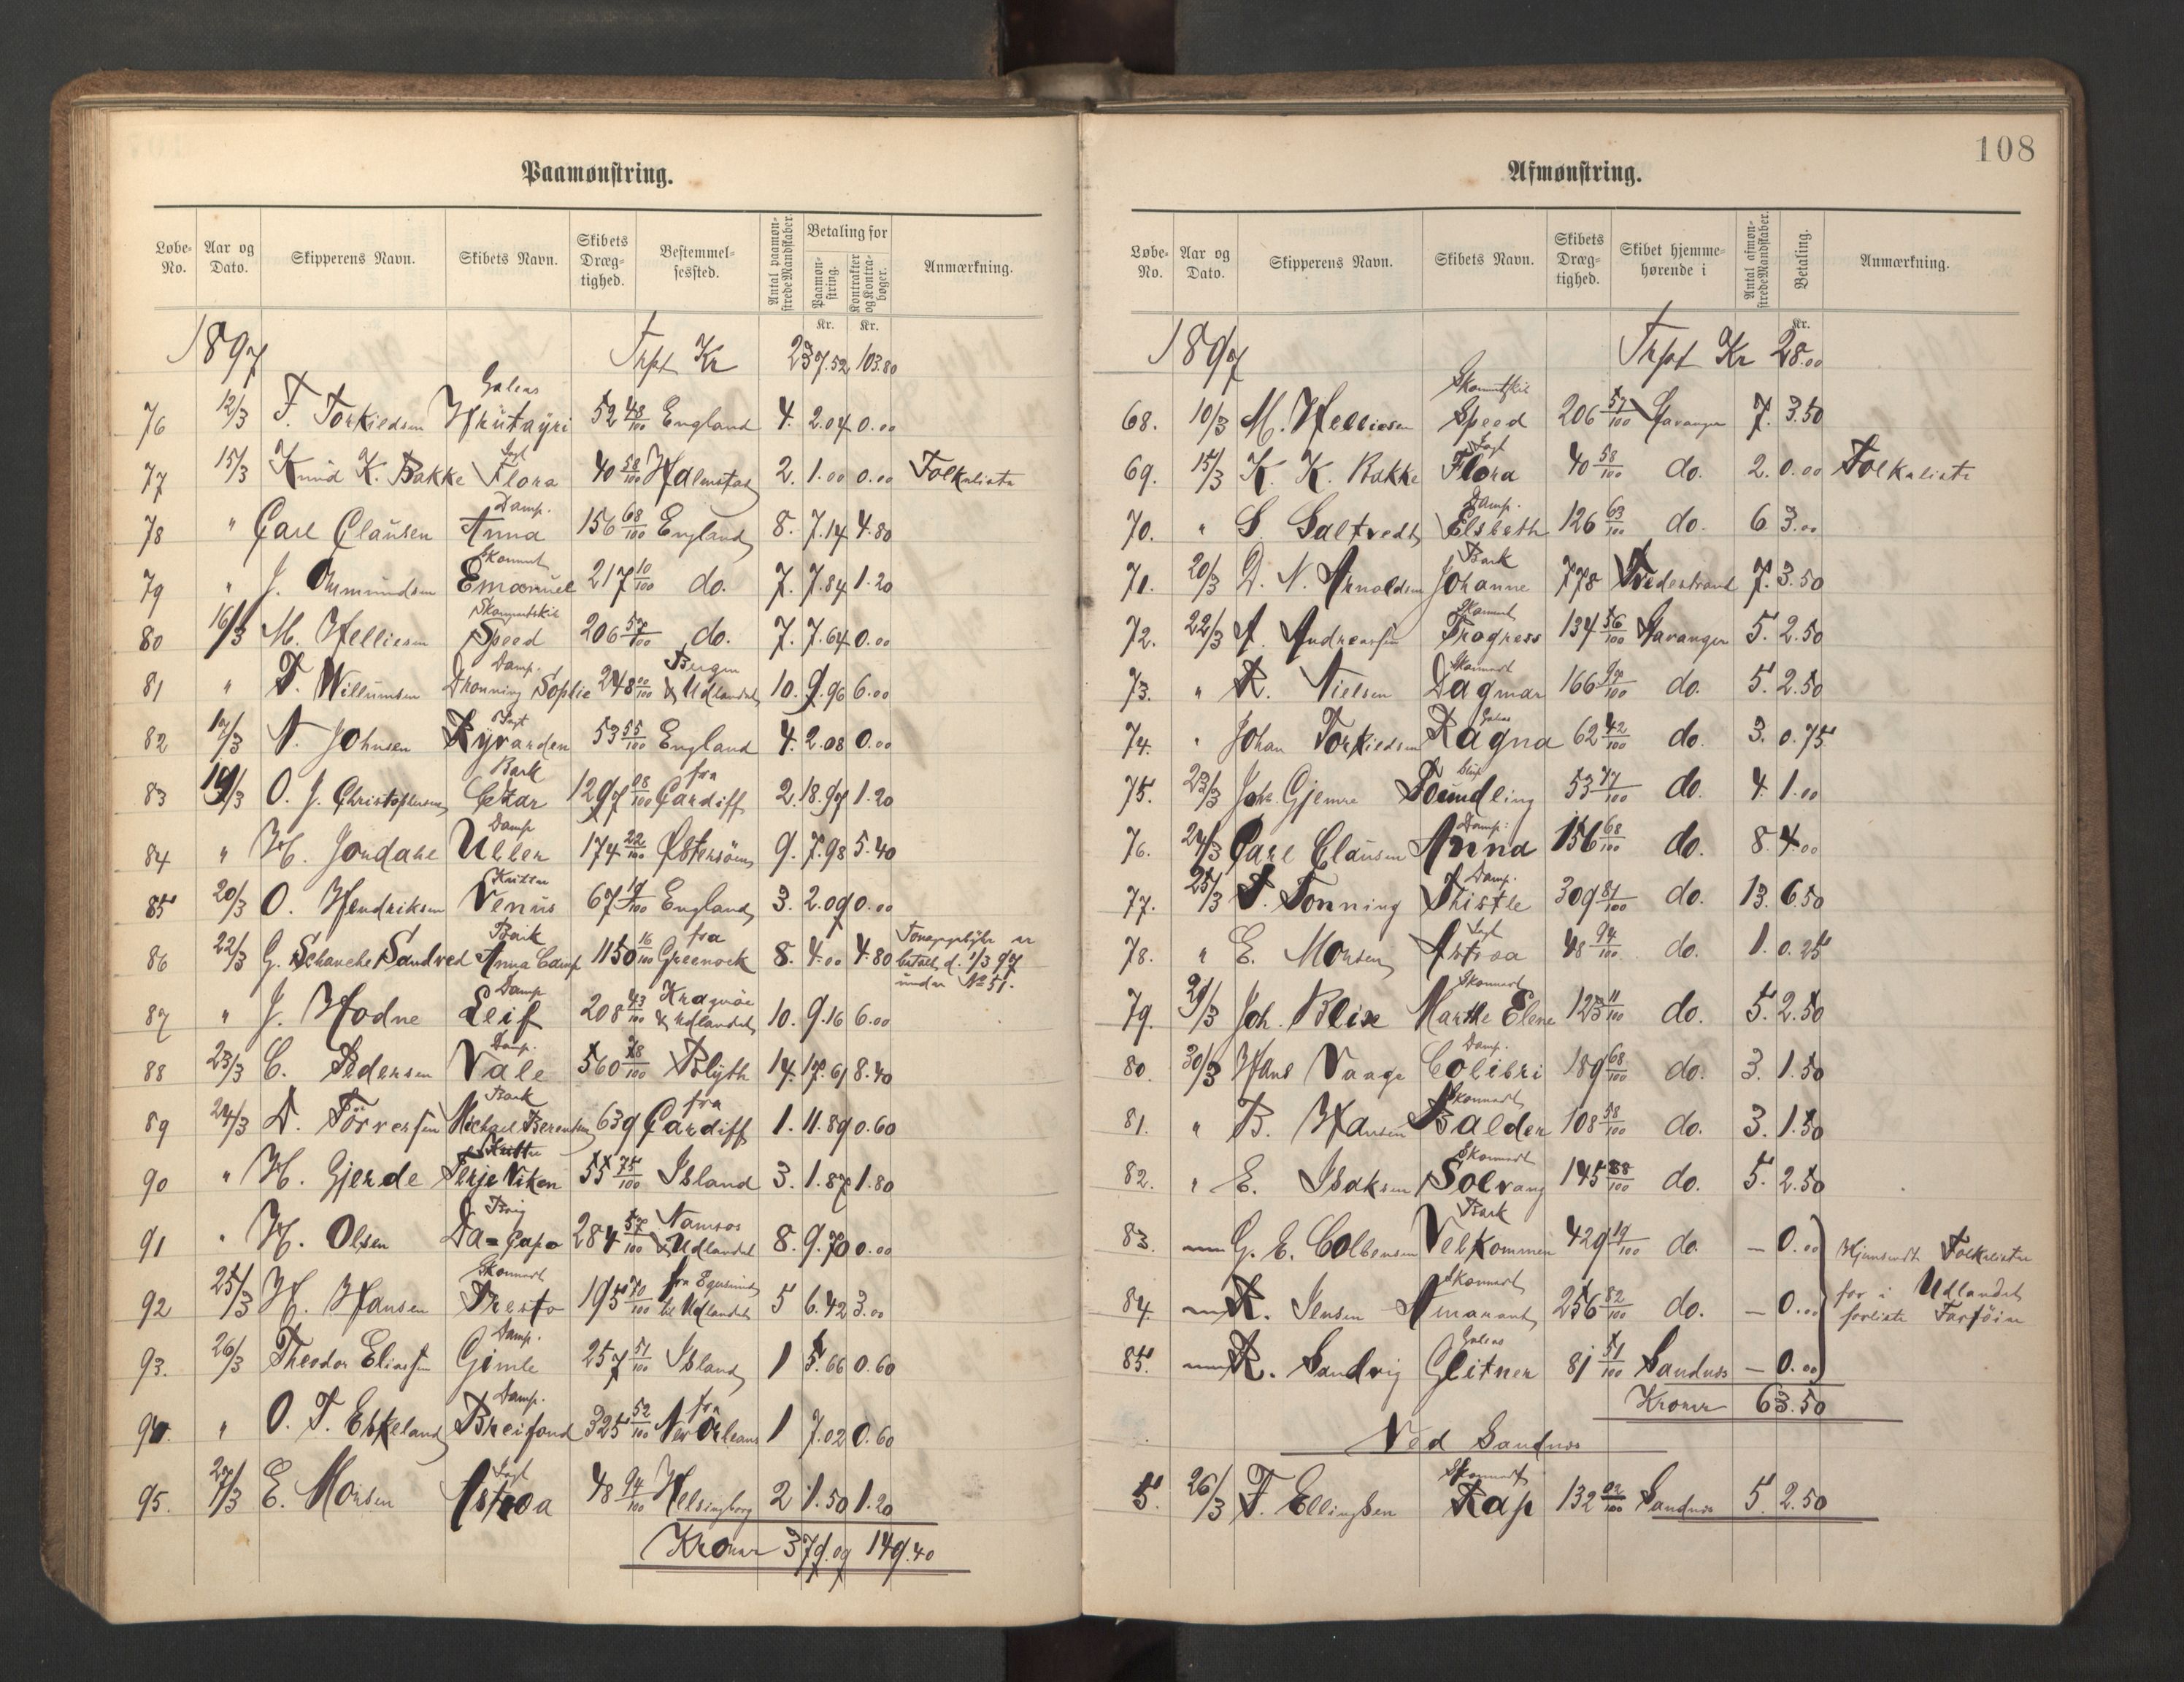 Paamønstring.
Løbe-No. Aar og Dato. Skipperens Navn. Skibets Navn. Skibets Dræg-tighed. Bestemmel-sessted. Antal paamøn-strede Mandskaber. Betaling for Paamøn-string. Kontrakter og Kontra-bøger. Anmærkning.
Kr. Kr.
1897 Trpt Kr 237.52 103.80
76 12/3 F. Torkildsen Galeas 52 48/100 England 4. 2.04 0.00
77 15/3 Knud K. Bakke Jagt Flora 40 58/100 Halmstad 2. 1.00 0.00 Folkeliste
78 " Carl Clausen Damp. Anna 156 68/100 England 8. 7.14 4.80
79 " J. Omundsen Skonnert Emanuel 217 10/100 do. 7. 7.84 1.20
80 16/3 M. Helliesen Skonnertskib Speed 206 57/100 do. 7. 7.64 0.00
81 " T. Willumsen Damp. Dronning Sophie 248 00/100 Bergen & Udlandet 10. 9.96 6.00
82 17/3 N. Johnsen Jagt Ryvarden 53 55/100 England 4. 2.08 0.00
83 19/3 O. J. Christophersen Bark Cezar 1297 08/100 fra Cardiff 2. 18.97 1.20
84 " H. Jordahl Damp Uller 174 22/100 Østersøen 9. 7.98 5.40
85 20/3 O. Hendriksen Kutter Venus 67 19/100 England 3. 2.09 0.00
86 22/3 G. Schanche Sandved Bark Anna Camp 1150 16/100 fra Greenock 8. 4.00 4.80 er betalt d. 1/3 97 under No 51.
87 " J. Hodne Damp Leif 208 43/100 Kragerøe & Udlandet 10. 9.16 6.00
88 23/3 C. Pedersen Damp. Vale 560 78/100 Blyth 14. 17.61 8.40
89 24/3 D. Törresen Bark Michael Berentsen 639 fra Cardiff 1. 11.89 0.60
90 " H. Gjerde Kutter Terje Viken 55 75/100 Island 3. 1.87 1.80
91 " H. Olsen Brig Da=Capo 284 57/100 Namsos & Udlandet 8. 9.70 0.00
92 25/3 H. Hansen Skonnert Presto 195 70/100 fra Egersund til Udlandet 5 6.42 3.00
93. 26/3 Theodor Eliassen Damp. Gimle 257 51/100 Island 1 5.66 0.60
94. " O. T. Eskeland Damp. Breifond 325 52/100 fra New Orleans 1 7.02 0.60
95. 27/3 E. Monsen Jagt Astrea 48 94/100 Helsingborg 2 1.50 1.20
Kroner 379.09 149.40
108
Afmønstring.
Løbe-No. Aar og Dato. Skipperens Navn. Skibets Navn. Skibets Dræg-tighed. Skibet hjemme-hørende i Antal afmøn-strede Mandskaber. Betaling. Anmærkning.
Kr.
1897 Trpt Kr 28.00
68. 10/3 M. Helliesen Skonnertskib Speed 206 57/100 Stavanger 7. 3.50
69. 15/3 K. K. Bakke Jagt Flora 40 58/100 do. 2. 0.00 Folkeliste
70. " S. Saltvedt Damp. Elsbeth 126 63/100 do. 6 3.00
71. 20/3 D. N. Arnoldsen Bark Johanne 778 Tvedestrand 7. 3.50
72. 22/3 A. Andreassen Skonnert Progress 134 56/100 Stavanger 5. 2.50
73. " R. Nielsen Skonnert Dagmar 166 do. 5. 2.50
74. " Johan Torkildsen Galeas Ragna 62 42/100 do. 3. 0.75
75. 23/3 Joh. Gjemre Slup Foundling 53 77/100 do. 4. 1.00
76. 24/3 Carl Clausen Damp: Anna 156 68/100 do. 8. 4.00
77. 25/3 T. Tonning Damp. Thistle 309 81/100 do. 13. 6.50
78. " E. Monsen Jagt Astrea 48 94/100 do. 1. 0.25
79. 29/3 Joh. Blixe Skonnert Marthe Elene 123 11/100 do. 5. 2.50
80. 30/3 Hans Vaage Damp. Colibri 189 68/100 do. 3. 1.50
81. " B. Hansen Skonnert Balder 108 58/100 do. 3. 1.50
82. " E. Isaksen Skonnert Solvang 145 88/100 do. 5. 2.50
83. G. E. Colbensen Bark Velkommen 429 19/100 do. — 0.00 Hjemsendte Folkelister
84. R. Jensen Skonnert Amarant 256 82/100 do. — 0.00 for i Udlandet forliste Fartöier
85. R. Sandvig Galeas Glitner 81 51/100 Sandnes — 0.00
Kroner 63.50
Ved Sandnes
5. 26/3 F. Ellingsen Skonnert Rap 132 02/100 Sandnes 5. 2.50